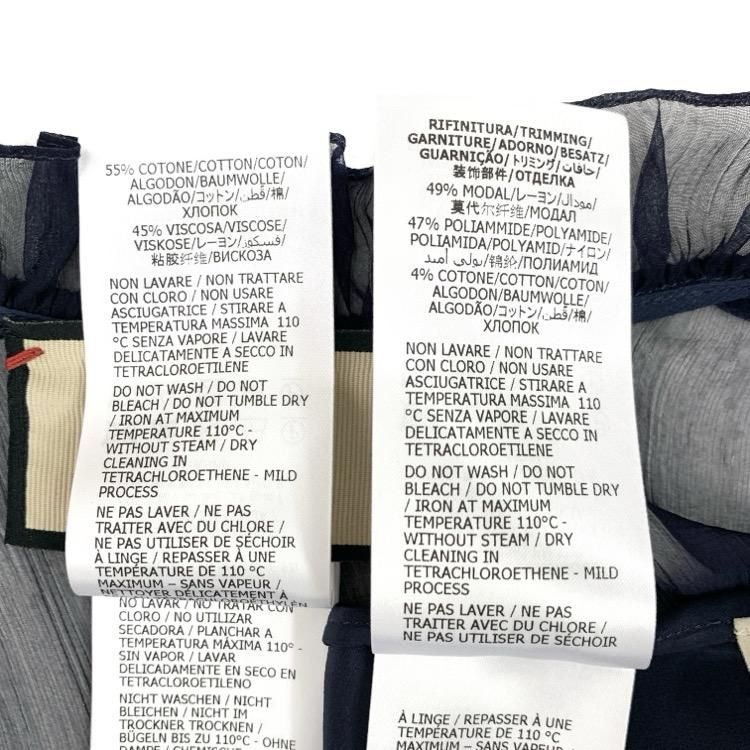 55% COTONE/COTTON/COTON/
ALGODON/BAUMWOLLE/
ALGODÃO/コットン/قطن/棉/
ХЛОПОК
45% VISCOSA/VISCOSE/
VISKOSE/レーヨン/فسكوز/
粘胶纤维/ВИСКОЗА
NON LAVARE / NON TRATTARE
CON CLORO / NON USARE
ASCIUGATRICE / STIRARE A
TEMPERATURA MASSIMA 110
°C SENZA VAPORE / LAVARE
DELICATAMENTE A SECCO IN
TETRACLOROETILENE
DO NOT WASH / DO NOT
BLEACH / DO NOT TUMBLE DRY
/ IRON AT MAXIMUM
TEMPERATURE 110°C -
WITHOUT STEAM / DRY
CLEANING IN
TETRACHLOROETHENE - MILD
PROCESS
NE PAS LAVER / NE PAS
TRAITER AVEC DU CHLORE /
NE PAS UTILISER DE SÉCHOIR
À LINGE / REPASSER À UNE
TEMPÉRATURE DE 110 °C
MAXIMUM – SANS VAPEUR /
NETTOYER DÉLICATEMENT À
NO LAVAR / NO TRATAR CON
CLORO / NO UTILIZAR
SECADORA / PLANCHAR A
TEMPERATURA MÁXIMA 110° -
SIN VAPOR / LAVAR
DELICADAMENTE EN SECO EN
TETRACLOROETILENO
NICHT WASCHEN / NICHT
BLEICHEN / NICHT IM
TROCKNER TROCKNEN /
BÜGELN BIS ZU 110°C - OHNE
DAMPF / CHEMISCHE
RIFINITURA/TRIMMING/
GARNITURE/ADORNO/BESATZ/
GUARNIÇÃO/トリミング/حافات/
装饰部件/ОТДЕЛКА
49% MODAL/レーヨン/مودال/
莫代尔纤维/МОДАЛ
47% POLIAMMIDE/POLYAMIDE/
POLIAMIDA/POLYAMID/ナイロン/
بولي أميد/锦纶/ПОЛИАМИД
4% COTONE/COTTON/COTON/
ALGODON/BAUMWOLLE/
ALGODÃO/コットン/قطن/棉/
ХЛОПОК
NON LAVARE / NON TRATTARE
CON CLORO / NON USARE
ASCIUGATRICE / STIRARE A
TEMPERATURA MASSIMA 110
°C SENZA VAPORE / LAVARE
DELICATAMENTE A SECCO IN
TETRACLOROETILENE
DO NOT WASH / DO NOT
BLEACH / DO NOT TUMBLE DRY
/ IRON AT MAXIMUM
TEMPERATURE 110°C -
WITHOUT STEAM / DRY
CLEANING IN
TETRACHLOROETHENE - MILD
PROCESS
NE PAS LAVER / NE PAS
TRAITER AVEC DU CHLORE /
NE PAS UTILISER DE SÉCHOIR
À LINGE / REPASSER À UNE
TEMPÉRATURE DE 110 °C
MAXIMUM – SANS VAPEUR /